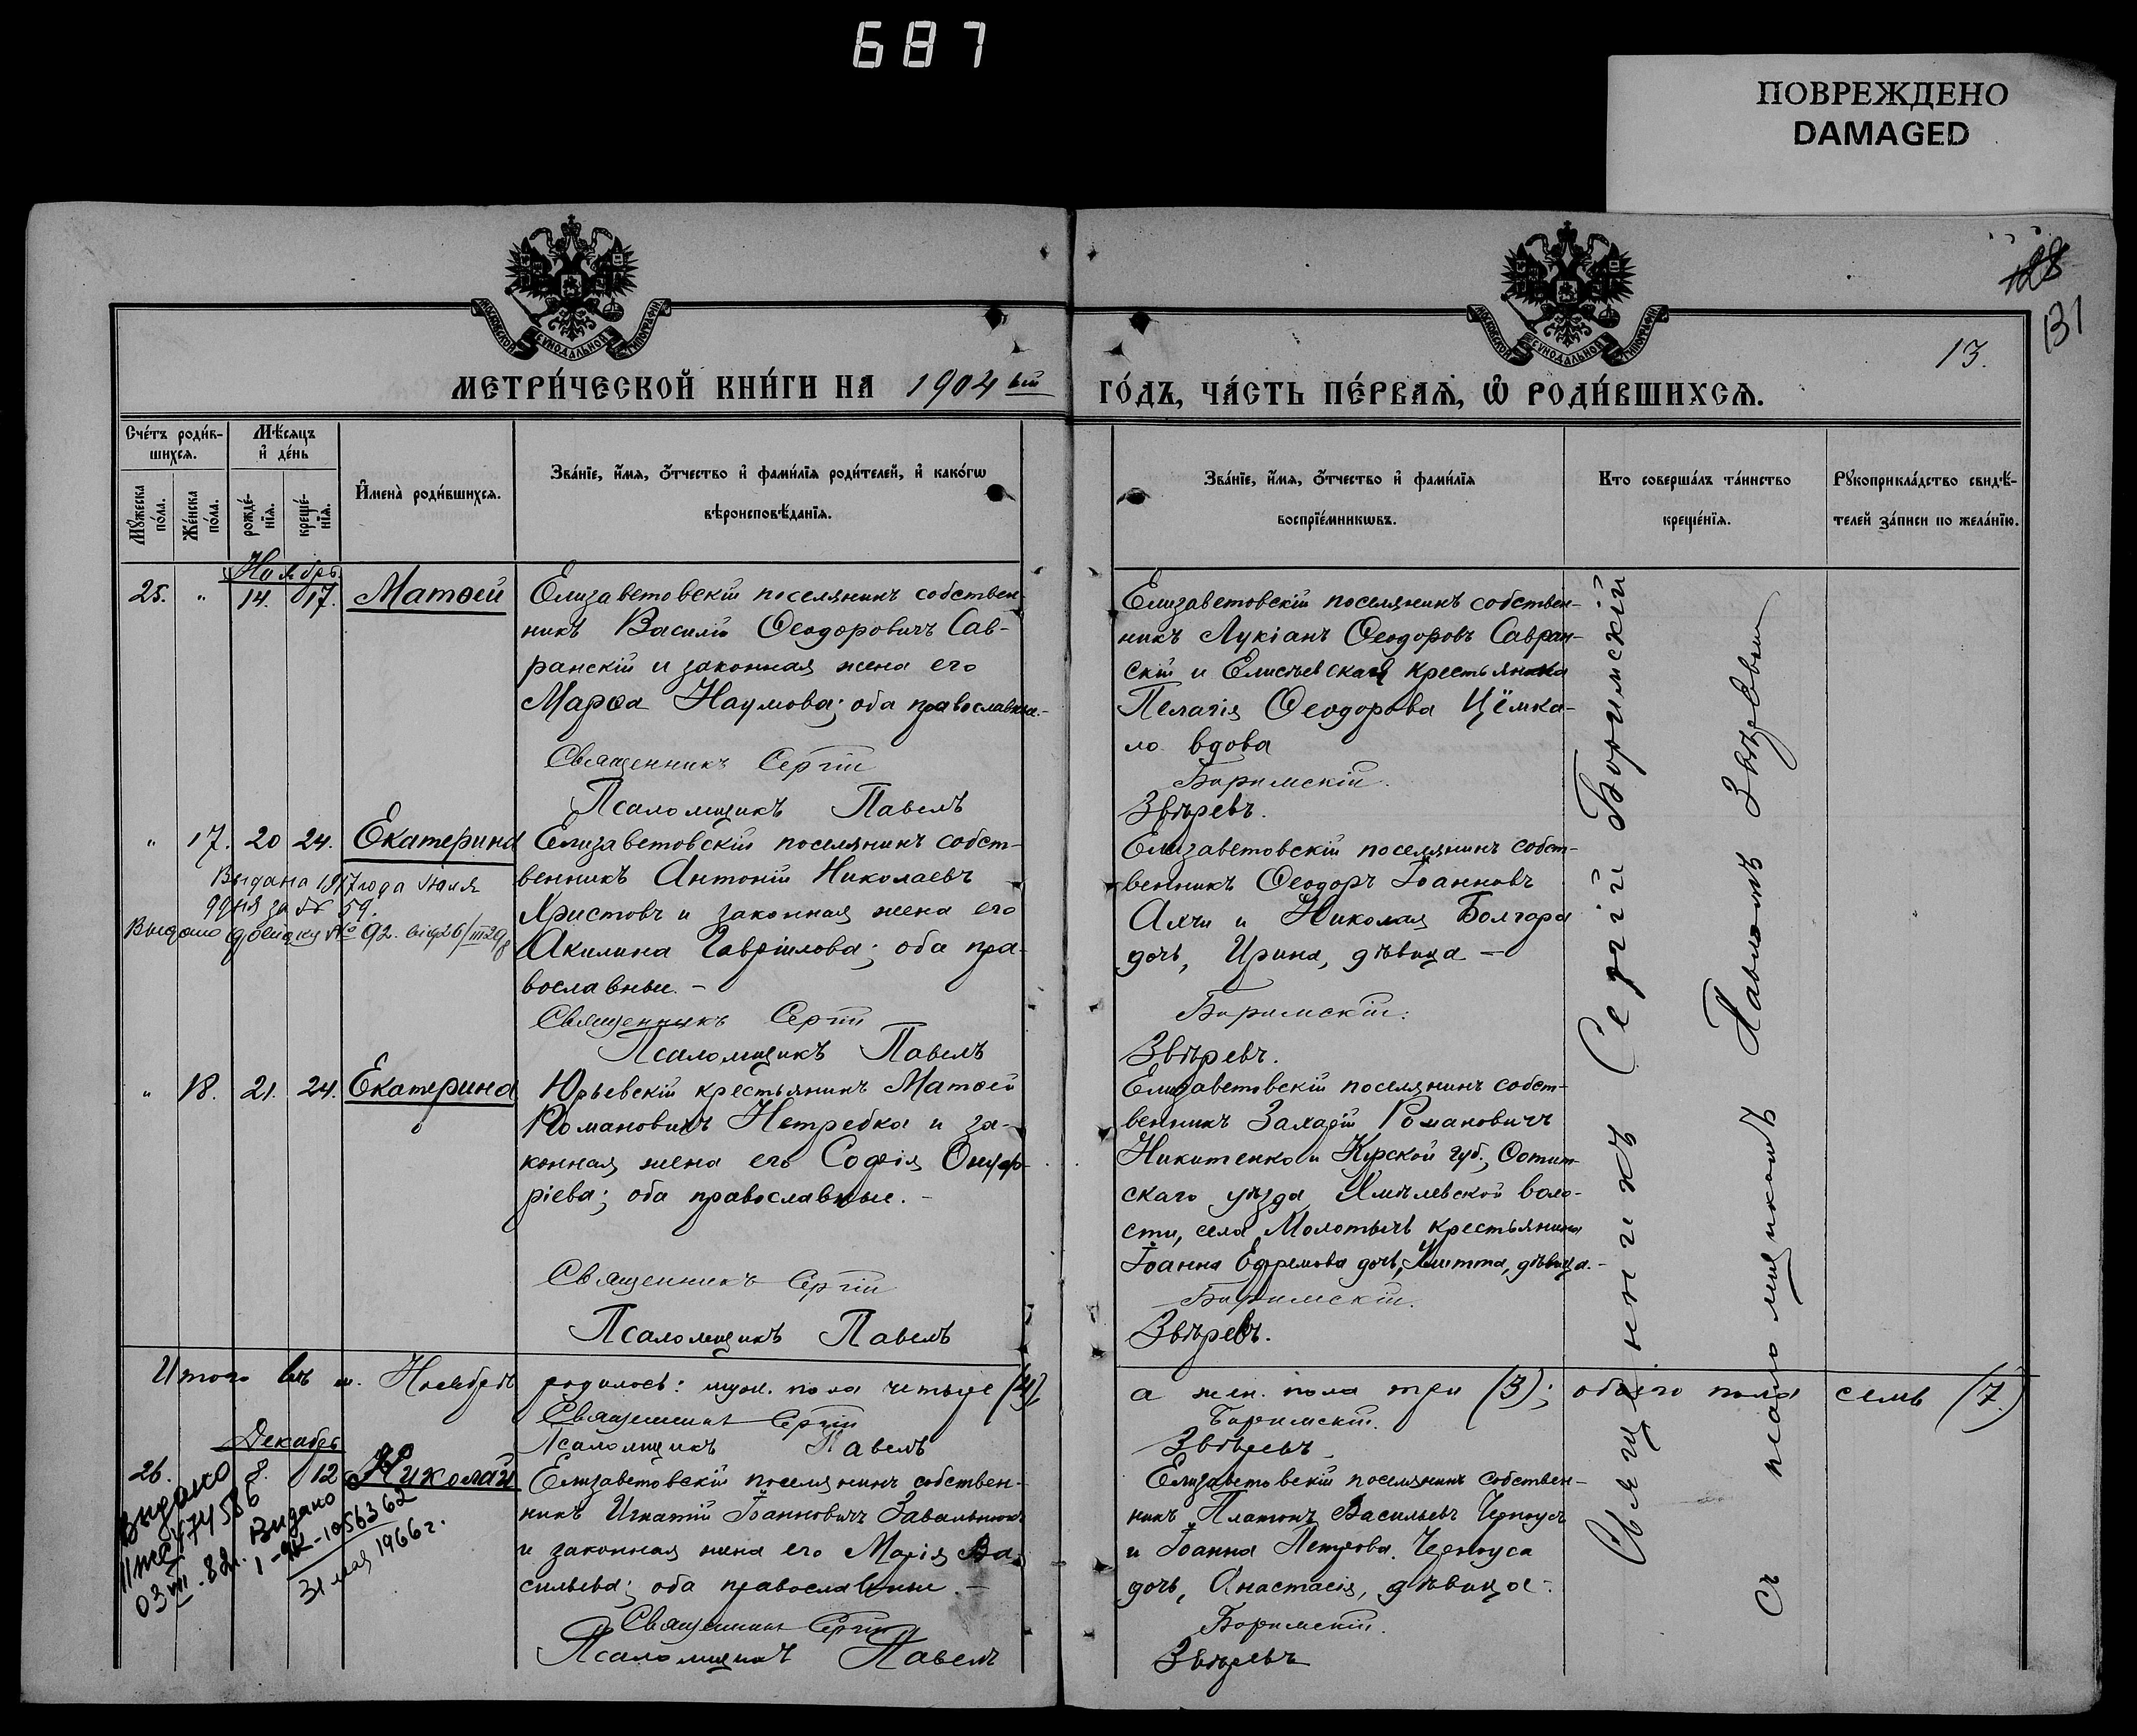 687
ПОВРЕЖДЕНО
DAMAGED
128
131
13.
МЕТРИ́ЧЕСКОЙ КНИ́ГИ НА 1904 ый ГО́ДЪ, ЧА́СТЬ ПЕ́РВАѦ, Ѡ҆ РОДИ́ВШИХСѦ.
Сче́тъ роди́в-
шихсѧ.
Мꙋ́жеска по́ла.
Же́нска по́ла.
Мѣ́сѧцъ
и҆ де́нь
рожде́-
нїѧ.
креще́-
нїѧ.
И҆мена̀ роди́вшихсѧ.
Зва́нїе, и҆́мѧ, ѻ҆́тчество и҆ фами́лїѧ роди́телей, и҆ како́гѡ
вѣроисповѣ́данїѧ.
Зва́нїе, и҆́мѧ, ѻ҆́тчество и҆ фами́лїѧ
воспрїе́мникѡвъ.
Кто соверша́лъ та́инство
креще́нїѧ.
Рꙋкоприкла́дство свидѣ́-
телей за́писи по жела́нїю.
Ноябрь
25. " 14. 17. Матѳей
Елизаветовскій поселянинъ собствен-
никъ Василій Ѳеодоровичъ Сав-
ранскій и законная жена его
Марѳа Наумова; оба православные.-
Священникъ Сергій
Псаломщикъ Павелъ
Елизаветовскій поселянинъ собствен-
никъ Лукіанъ Ѳеодоровъ Савран-
скій и крестьянка
Пелагія Ѳеодорова Цёмка-
ло вдова
Боримскій.
Звѣревъ.
" 17. 20 24. Екатерина
Выдана 1917 года Июля
9 дня за № 59.
Выдано довидку № 92.
Елизаветовскій поселянинъ собст-
венникъ Антоній Николаевъ
Христовъ и законная жена его
Акилина Гавріилова; оба пра-
вославные. -
Священникъ Сергій
Псаломщикъ Павелъ
Елизаветовскій поселянинъ собст-
венникъ Ѳеодоръ Іоанновъ
Алчи и Николая Болгара
дочь, Ирина, дѣвица -
Боримскій.
Звѣревъ.
" 18. 21. 24. Екатерина
Юрьевскій крестьянинъ Матѳей
Романовичъ Нетребка и за-
конная жена его Софія Онуф-
ріева; оба православные. -
Священникъ Сергій
Псаломщикъ Павелъ
Елизаветовскій поселянинъ собст-
венникъ Захарій Романовичъ
Никитенко и Курской губ.,
скаго уѣзда, Хмѣлевской воло-
сти, села Молотычъ крестьянина
Іоанна Ефремова дочь, дѣвица. -
Боримскій.
Звѣревъ.
Итого въ м. Ноябрѣ родилось: муж. пола четыре (4), а жен. пола три (3); обоего пола семь (7.)
Священникъ Сергій Боримскій.
Псаломщикъ Павелъ Звѣревъ
Декабрь
26. 8. 12 Николай
Выдано
474586
03 VII.82г.
Видано
1-ЯК-1056362
31 мая 1966 г.
Елизаветовскій поселянинъ собствен-
никъ Игнатій Іоанновичъ Завальнюкъ
и законная жена его Марія Ва-
сильева; оба православные. -
Священникъ Сергій
Псаломщикъ Павелъ
Елизаветовскій поселянинъ собствен-
никъ Платонъ Васильевъ Черноусъ
и Іоанна Петрова Черноуса
дочь, Анастасія, дѣвица -.
Боримскій.
Звѣревъ
Священникъ Сергій Боримскій
съ псаломщикомъ Павломъ Звѣревым